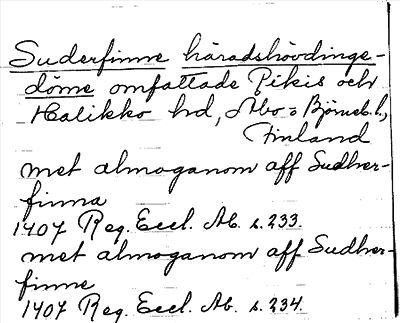 Suderfinne häradshövdinge-
döme omfattade Pikis och
Halikko hd, Åbo o Björneb. l.,
Finland
met almoganom aff Sudher-
finna
1407 Reg. Eccl. Ab. s. 233.
met almoganom aff Sudher-
finne
1407 Reg. Eccl. Ab. s. 234.